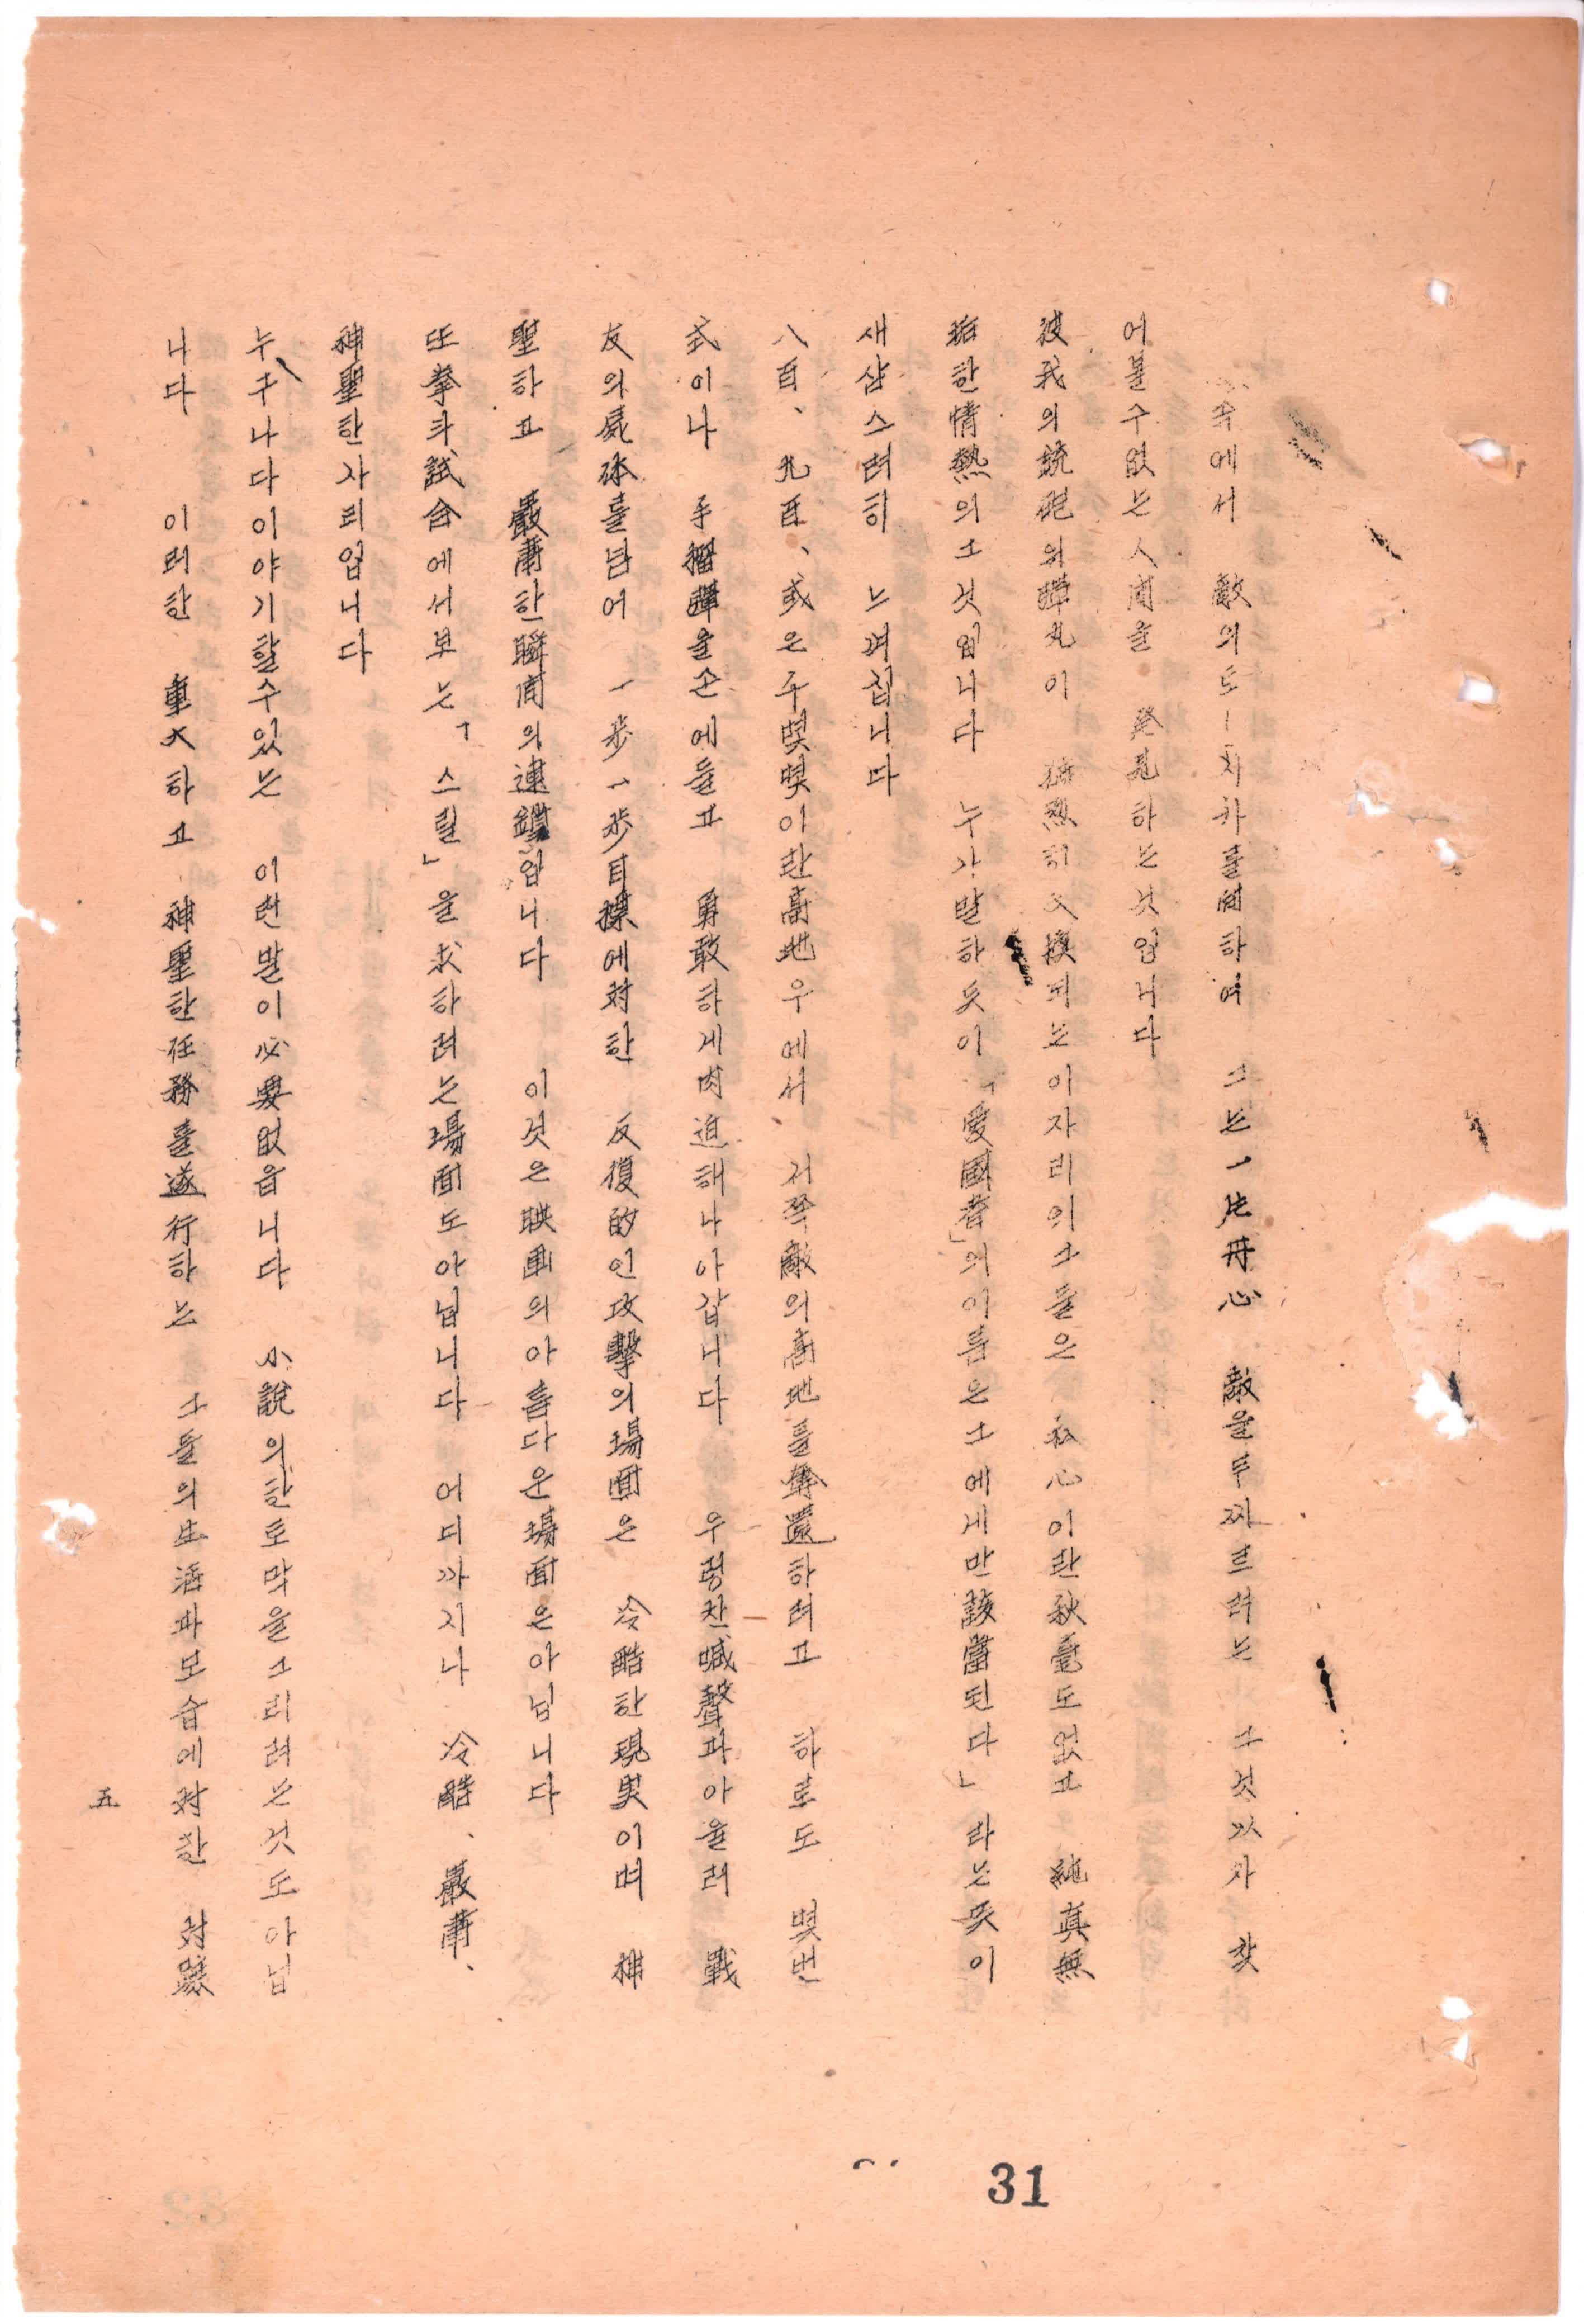 속에서 敵의도―치카를 하여 그는 一片丹心 敵을무찌르려는 그것 찾
어볼수없는 人間을 發見하는것입니다
彼我의銃砲의彈丸이 猛烈히交換되는이자리의그들은 私心이란秋毫도없고 純眞無
垢한情熱의그것입니다 누가말하듯이 「愛國者」의이름은그에게만該當된다」라는듯이
새삼스러히 느껴집니다
八百、九百、或은千몟몟이란高地우에서 저쪽敵의高地를奪還하려고 하로도 몟번
式이나 手榴彈을손에들고 勇敢하게肉迫해나아갑니다 우렁찬喊聲과아울러 戰
友의屍體를넘어 一步一步目標에対한 反復的인攻擊의場面은 冷酷한現実이며 神
聖하고 嚴肅한瞬间의連鎖입니다 이것은映画의아름다운場面은아닙니다
또拳斗試合에서보는「스릴」을求하려는場面도아닙니다 어디까지나 冷酷、嚴肅、
神聖한자리입니다
누구나다이야기할수있는 이런말이必要없읍니다 小說의한토막을그리려는것도아닙
니다 이러한 重大하고 神聖한任務를遂行하는 그들의生活과모습에対한 対談
五
31